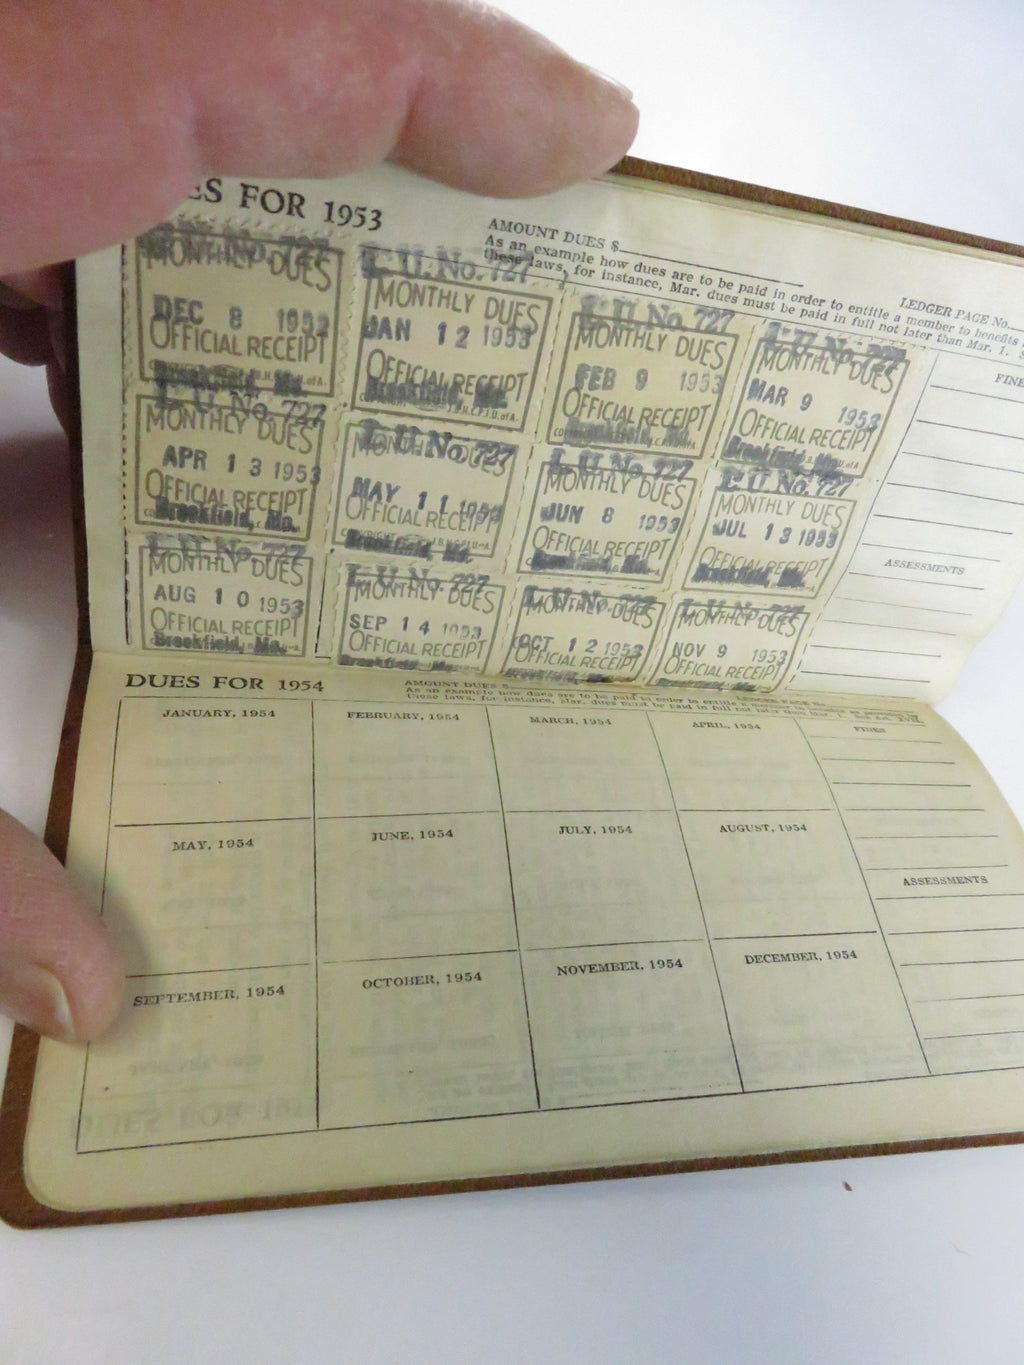 ES FOR 1953
AMOUNT DUES $
As an example how dues are to be paid in order to entitle a member to benefits
these laws, for instance, Mar. dues must be paid in full not later than Mar. 1.
LEDGER PAGE No.
L. U. No. 727
MONTHLY DUES
DEC 8 1953
OFFICIAL RECEIPT
Brookfield, Mo.
L. U. No. 727
MONTHLY DUES
JAN 12 1953
OFFICIAL RECEIPT
Brookfield, Mo.
L. U. No. 727
MONTHLY DUES
FEB 9 1953
OFFICIAL RECEIPT
Brookfield, Mo.
L. U. No. 727
MONTHLY DUES
MAR 9 1953
OFFICIAL RECEIPT
Brookfield, Mo.
FINE
L. U. No. 727
MONTHLY DUES
APR 13 1953
OFFICIAL RECEIPT
Brookfield, Mo.
L. U. No. 727
MONTHLY DUES
MAY 11 1953
OFFICIAL RECEIPT
Brookfield, Mo.
L. U. No. 727
MONTHLY DUES
JUN 8 1953
OFFICIAL RECEIPT
Brookfield, Mo.
L. U. No. 727
MONTHLY DUES
JUL 13 1953
OFFICIAL RECEIPT
Brookfield, Mo.
ASSESSMENTS
L. U. No. 727
MONTHLY DUES
AUG 10 1953
OFFICIAL RECEIPT
Brookfield, Mo.
L. U. No. 727
MONTHLY DUES
SEP 14 1953
OFFICIAL RECEIPT
Brookfield, Mo.
L. U. No. 727
MONTHLY DUES
OCT 12 1953
OFFICIAL RECEIPT
Brookfield, Mo.
L. U. No. 727
MONTHLY DUES
NOV 9 1953
OFFICIAL RECEIPT
Brookfield, Mo.
DUES FOR 1954
AMOUNT DUES $
LEDGER PAGE No.
As an example how dues are to be paid in order to entitle a member to benefits
these laws, for instance, Mar. dues must be paid in full not later than Mar. 1.
JANUARY, 1954
FEBRUARY, 1954
MARCH, 1954
APRIL, 1954
FINES
MAY, 1954
JUNE, 1954
JULY, 1954
AUGUST, 1954
ASSESSMENTS
SEPTEMBER, 1954
OCTOBER, 1954
NOVEMBER, 1954
DECEMBER, 1954